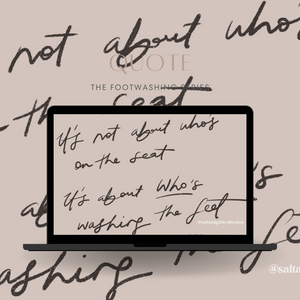 not about who's
QUOTE
THE FOOTWASHING SERIES
on the seat
It's not about who's
on the seat
It's about Who's
washing the feet
's
ashing
@salta